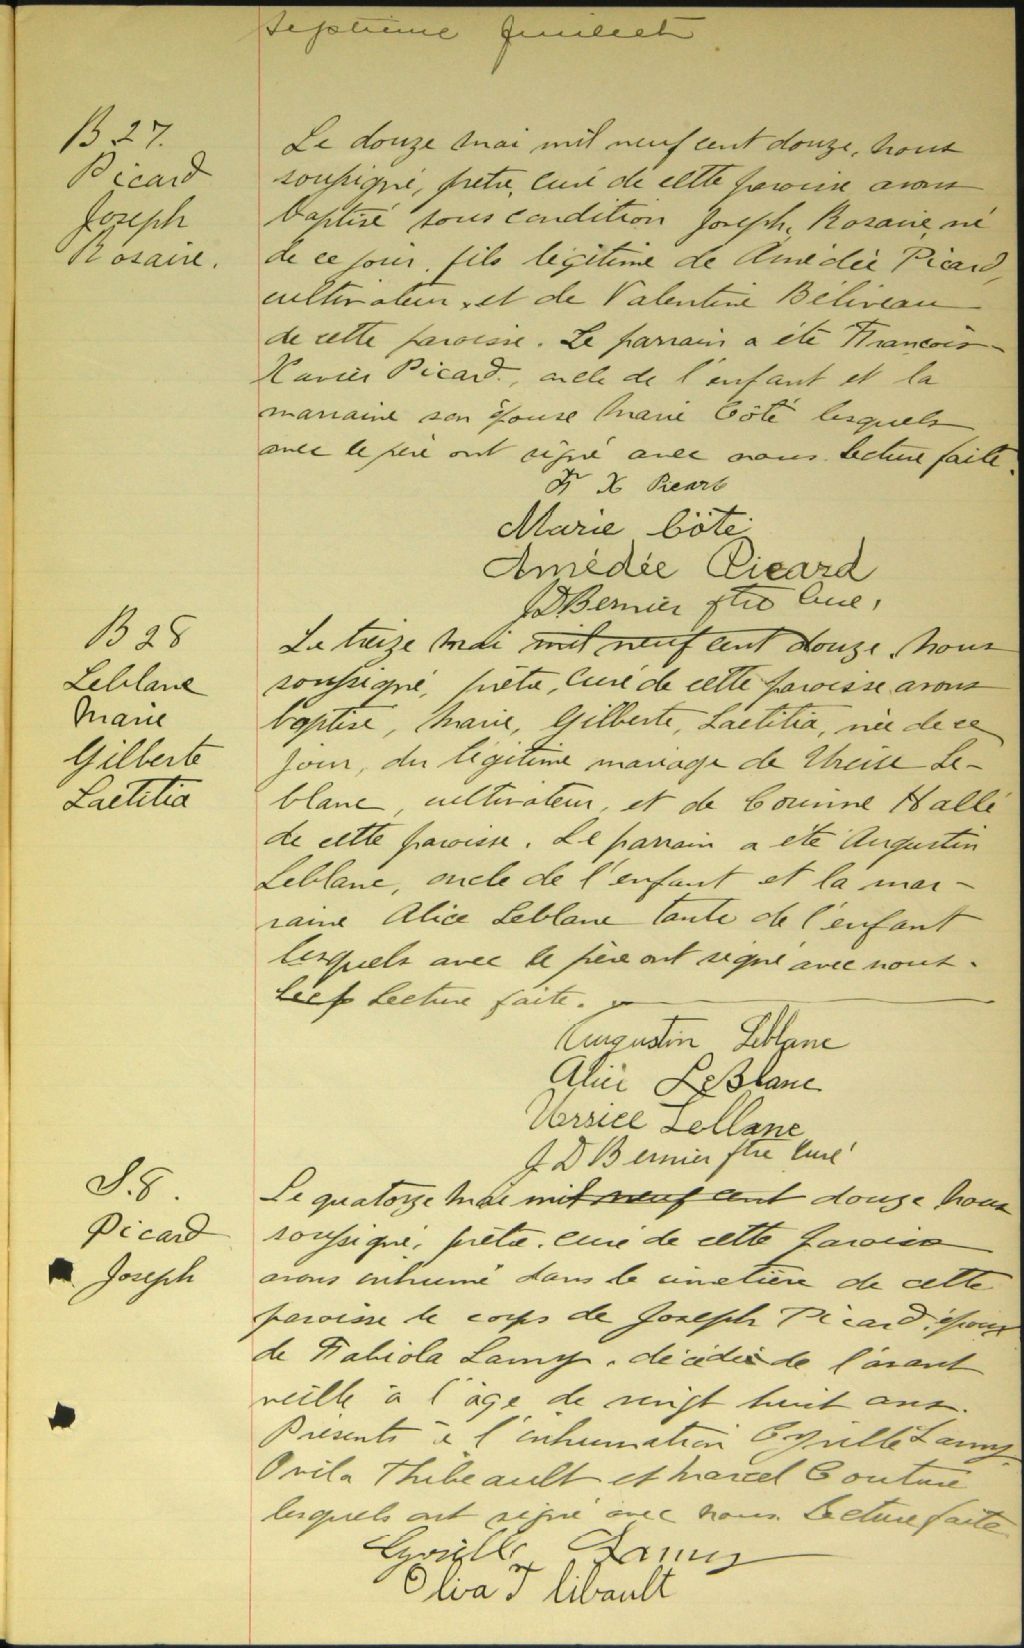 septième feuillet
B 27.
Picard
Joseph
Rosaire.
Le douze mai mil neuf cent douze, nous
soussigné, prêtre, curé de cette paroisse avons
baptisé sous condition Joseph, Rosaire, né
de ce jour, fils légitime de Amédée Picard,
cultivateur, et de Valentine Béliveau
de cette paroisse. Le parrain a été François-
Xavier Picard, oncle de l'enfant et la
marraine son épouse Marie Côté lesquels
avec le père ont signé avec nous. Lecture faite.
F X Picard
Marie Côté
Amédée Picard
J.D. Bernier ptre Curé,
B 28
Leblanc
Marie
Gilberte
Laetitia
Le treize mai mil neuf cent douze, nous
soussigné, prêtre, curé de cette paroisse avons
baptisé, Marie, Gilberte, Laetitia, née de ce
jour, du légitime mariage de Le-
blanc, cultivateur, et de Corinne Hallé
de cette paroisse. Le parrain a été Augustin
Leblanc, oncle de l'enfant et la mar-
raine Alice Leblanc tante de l'enfant
lesquels avec le père ont signé avec nous.
Lecture faite.
Augustin Leblanc
Alice LeBlanc
Leblanc
J D Bernier ptre Curé
S. 8.
Picard
Joseph
Le quatorze mai mil neuf cent douze nous
soussigné, prêtre, curé de cette paroisse
avons inhumé dans le cimetière de cette
paroisse le corps de Joseph Picard, époux
de Fabiola Lamy, décédé de l'avant
veille à l'âge de vingt huit ans.
Présents à l'inhumation Cyrille Lamy,
Ovila Thibeault et Marcel Couture
lesquels ont signé avec nous. Lecture faite
Cyrille Lamy
Oliva Tlibault